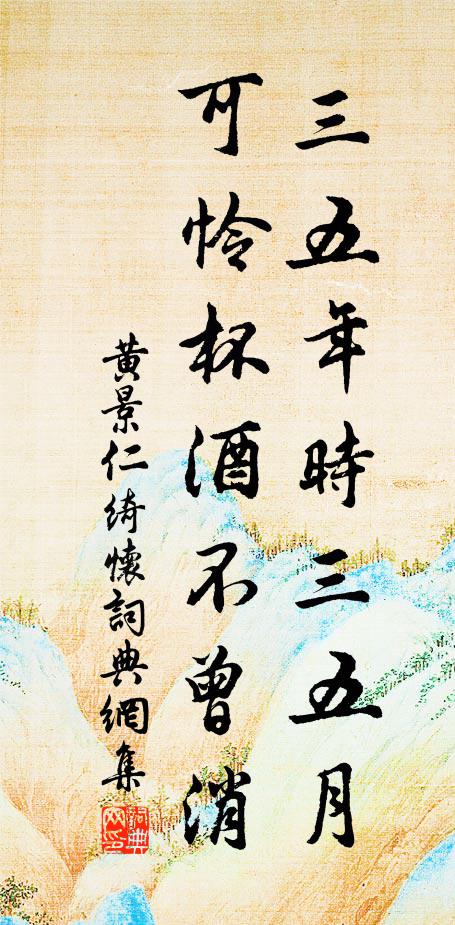 三五年時三五月
可怜杯酒不曾消
黃景仁綺懷詞典網集
詞典網印